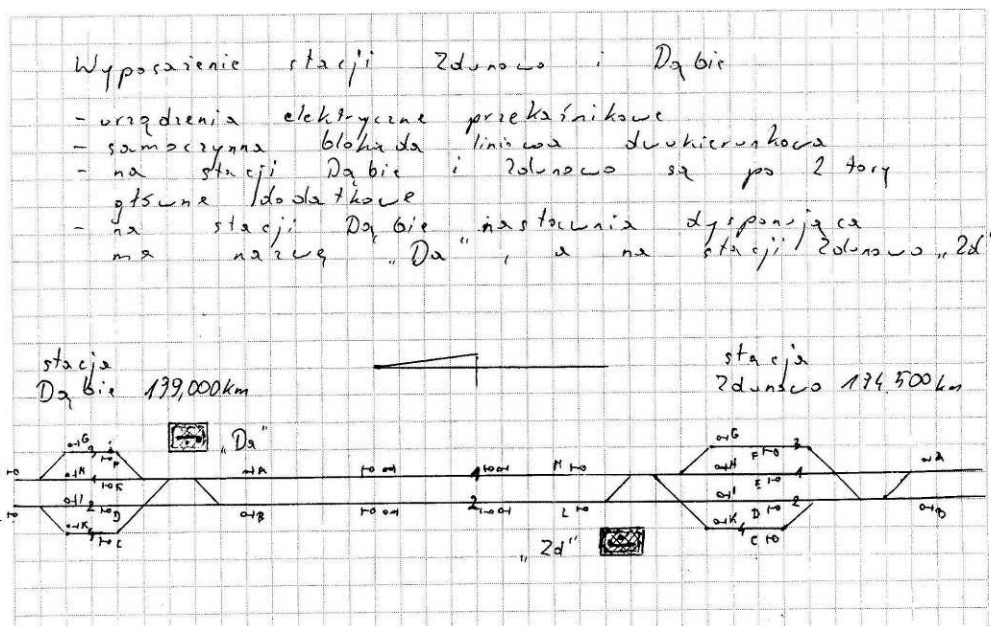 Wyposażenie stacji Zdunowo i Dąbie
- urządzenia elektryczne przekaźnikowe
- samoczynna blokada liniowa dwukierunkowa
- na stacji Dąbie i Zdunowo są po 2 tory
główne dodatkowe
- na stacji Dąbie nastawnia dysponująca
ma nazwę „Da", a na stacji Zdunowo „Zd"
stacja
Dąbie 139,000km
stacja
Zdunowo 174,500km
„Da"
G
F
A
H
K
I 2
D
B
K
C
1
2
M
L
„Zd"
G
F
3
H
E
1
A
I
D
2
B
K
4
C